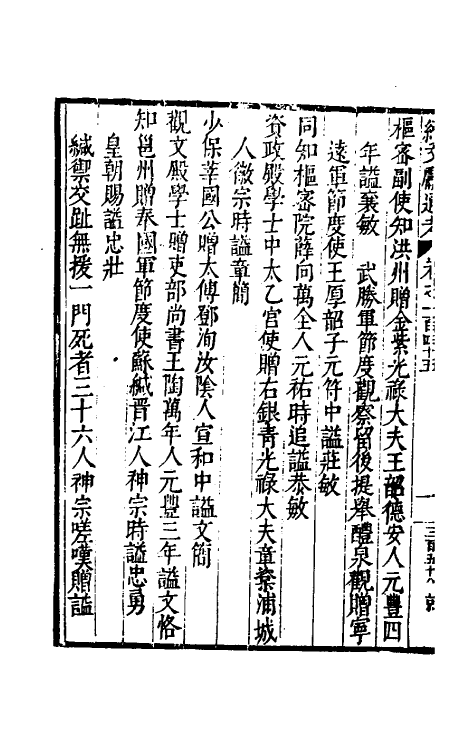 續文獻通考 卷之一百四十五 一 三百五十八
樞密副使知洪州贈金紫光祿大夫王韶德安人元豐四
年諡襄敏 武勝軍節度觀察留後提舉醴泉觀贈寧
遠軍節度使王厚韶子元符中諡莊敏
同知樞密院薛向萬全人元祐時追諡恭敏
資政殿學士中太乙宮使贈右銀青光祿大夫章楶浦城
人徽宗時諡章簡
少保莘國公贈太傅鄧洵汝陰人宣和中諡文簡
觀文殿學士贈吏部尚書王陶萬年人元豐三年諡文恪
知邕州贈奉國軍節度使蘇緘晉江人神宗時諡忠勇
皇朝賜諡忠壯
緘禦交趾無援一門死者三十六人神宗嗟嘆贈諡